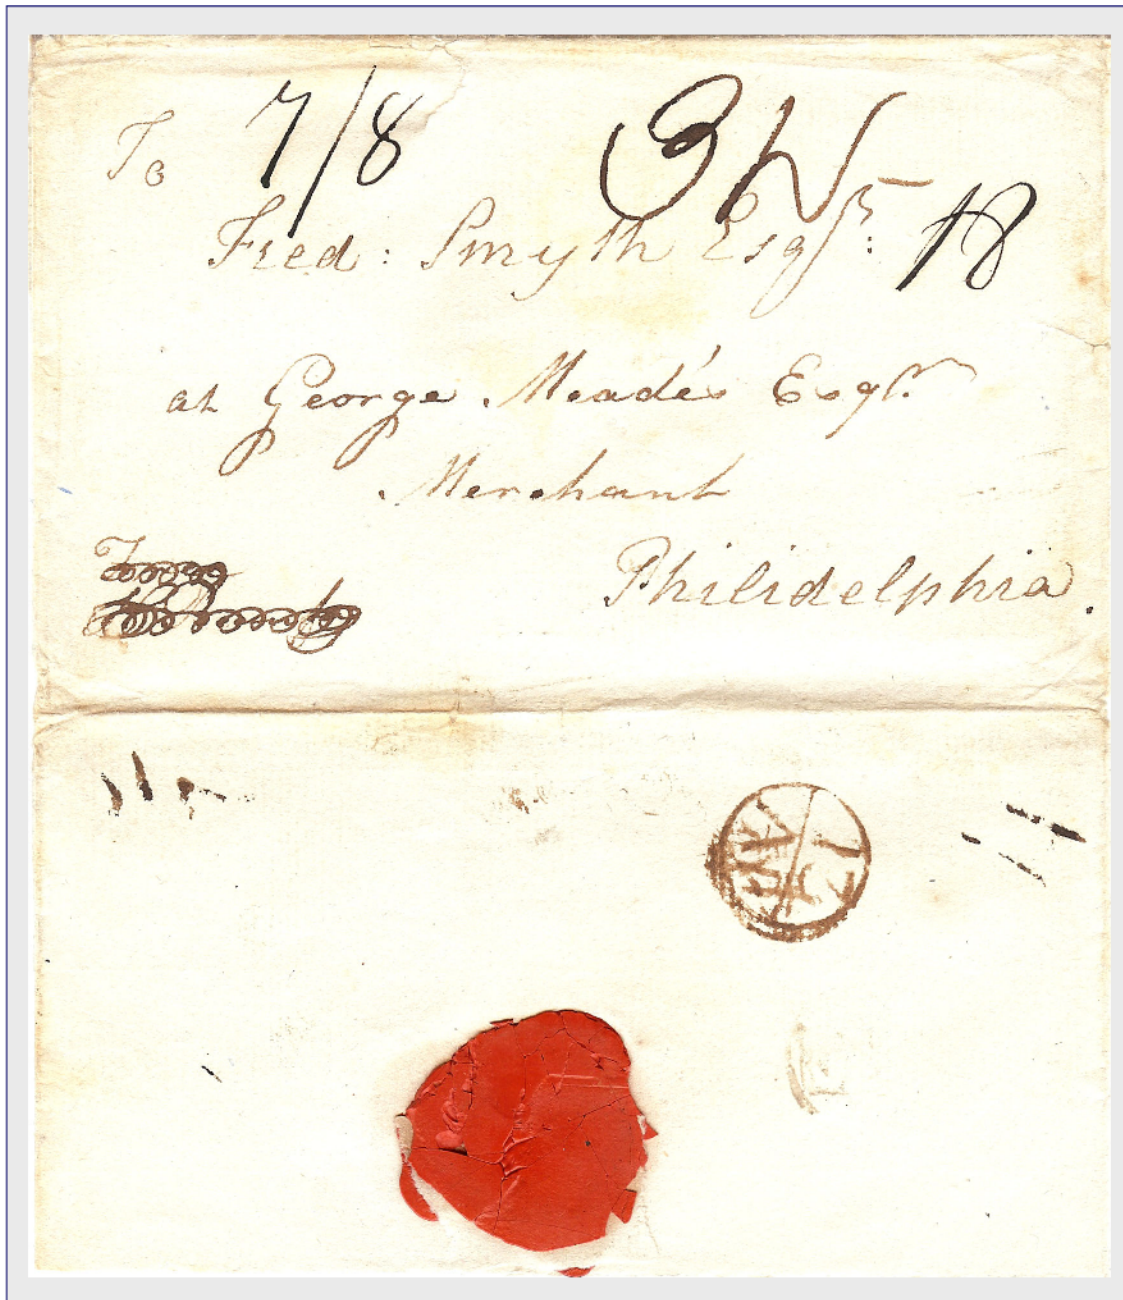 To 7/8 3N
Fred: Smyth Esqr: 18
at George Meade's Esqr.
Merchant
Philidelphia.